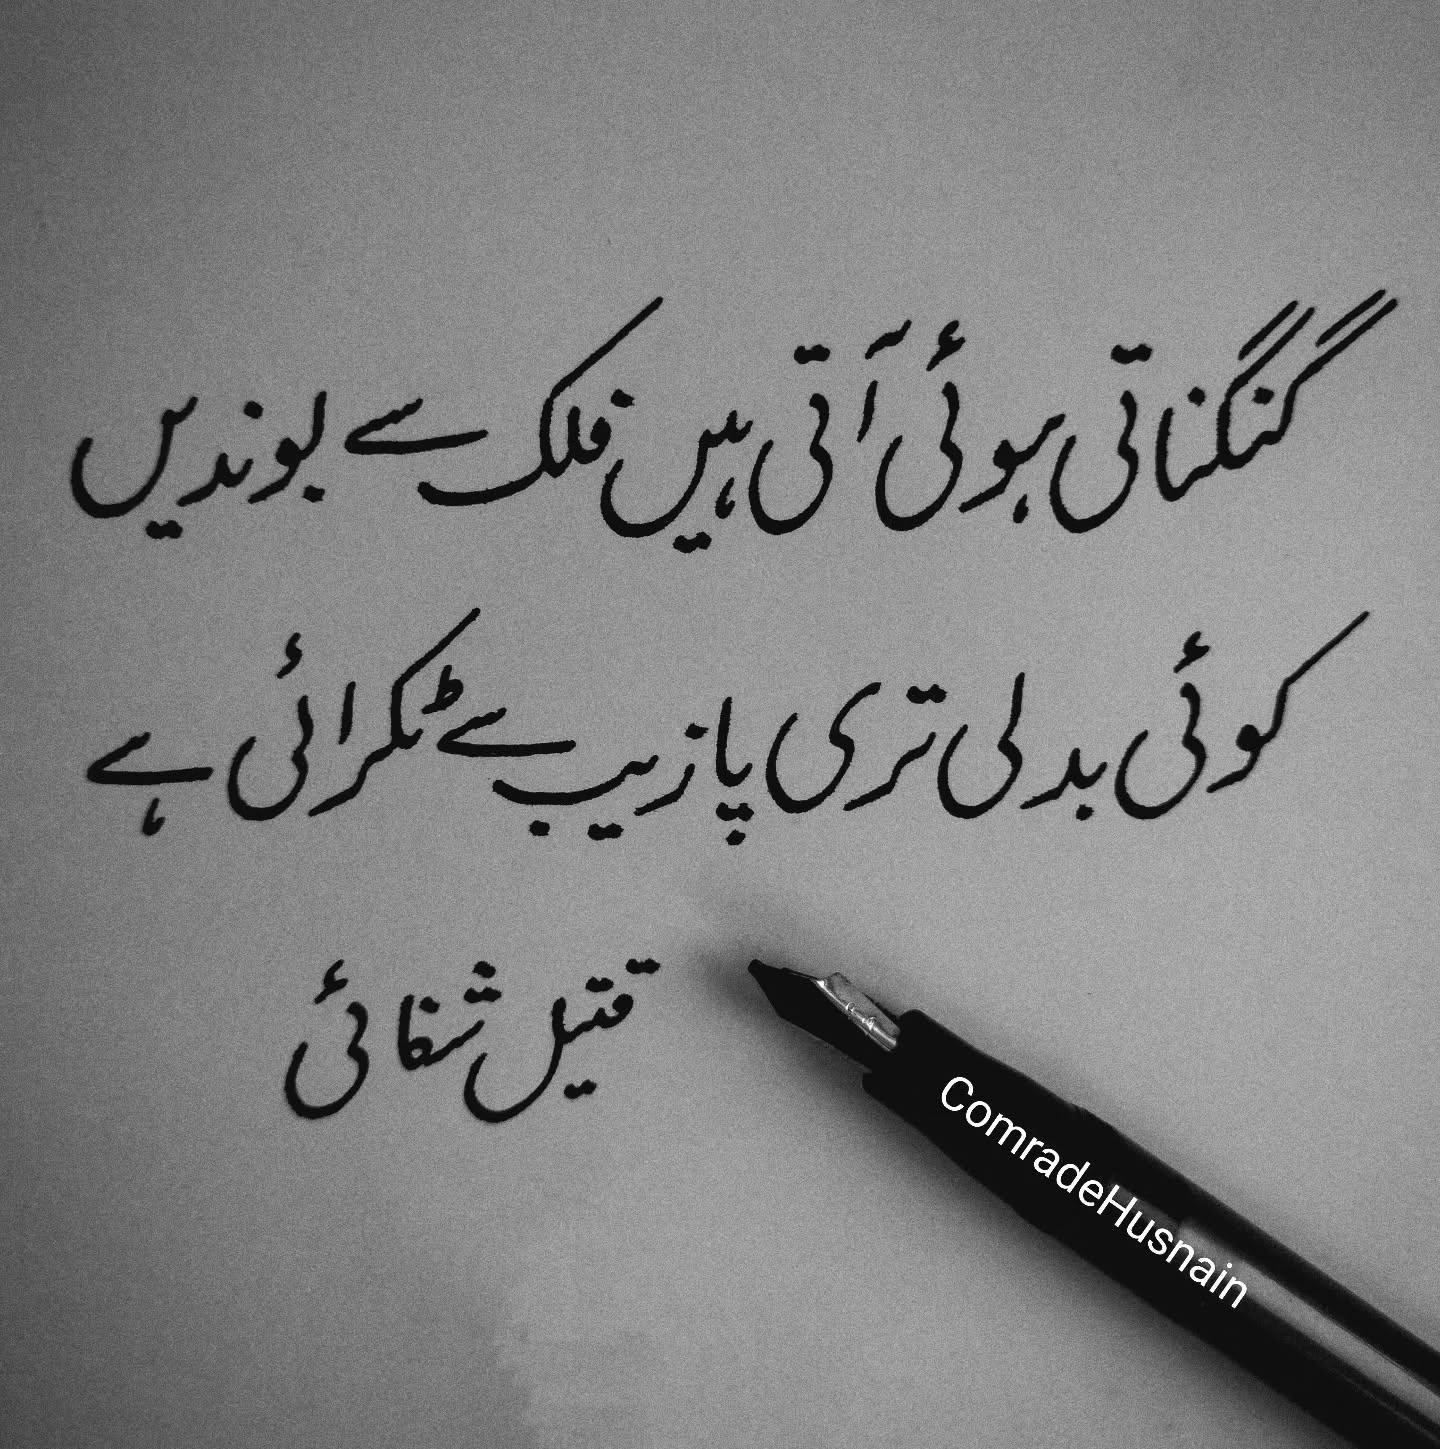 گنگناتی ہوئی آتی ہیں فلک سے بوندیں
کوئی بدلی تری پازیب سے ٹکرائی ہے
قتیل شفائی
ComradeHusnain